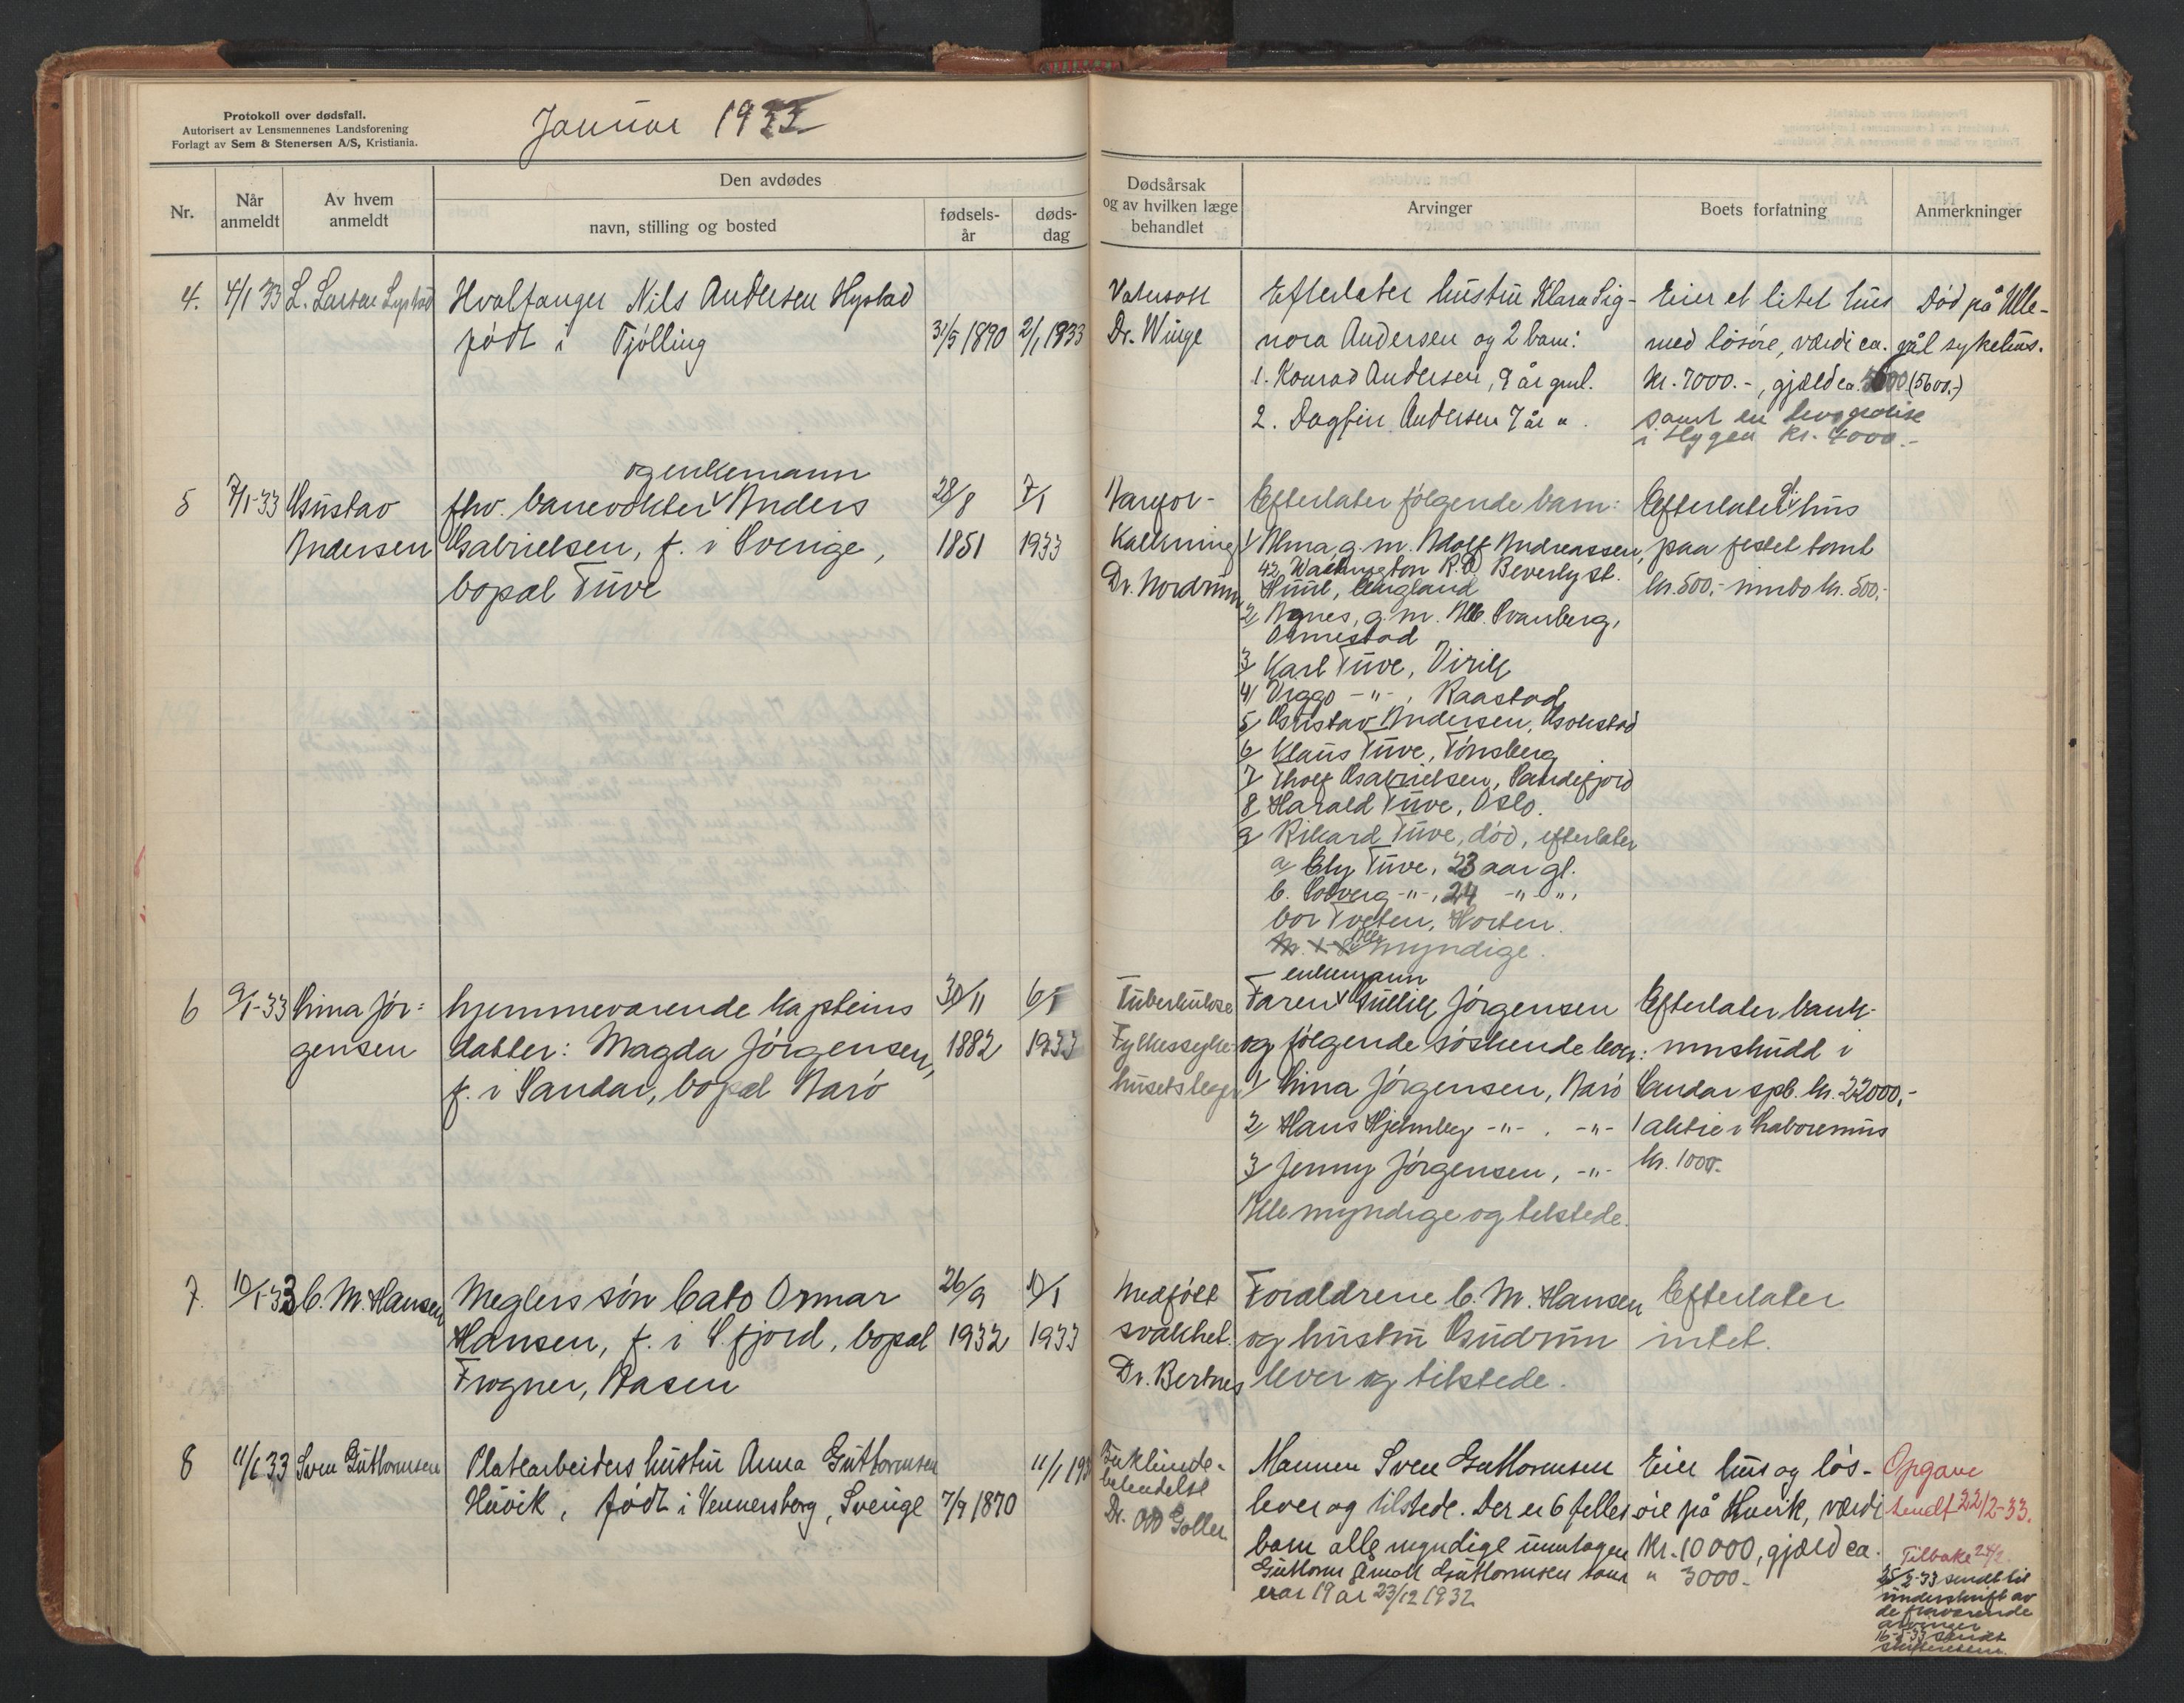 Protokoll over dødsfall.
Autorisert av Lensmennenes Landsforening
Forlagt av Sem & Stenersen A/S, Kristiania.
Januar 1933
Nr.
Når anmeldt
Av hvem anmeldt
Den avdødes
navn, stilling og bosted
fødsels-år
døds-dag
Dødsårsak og av hvilken læge behandlet
Arvinger
Boets forfatning
Anmerkninger
4. 4/1 33 L. Larsen Lystad
Hvalfanger Nils Andersen Hystad
født i Tjølling
31/5 1890 2/1 1933
Vatersott
Dr. Winge
Efterlater hustru Klara Sig-
nora Andersen og 2 barn:
1. Konrad Andersen, 9 år gml.
2. Dagfin Andersen 7 år "
Eier et litet hus
med løsøre, værdi ca.
kr. 7000.-, gjæld ca. (5600.-)
samt en
i Hygea kr. 4000.-
Død på Ulle-
vål sykehus.
5 7/1-33 Gustav
Andersen
og enkemann
fhv. banevokter Anders
Gabrielsen, f. i Sverige,
bopæl Tuve
28/8
1851
7/1
1933
Aarefor-
kalkning
Dr. Nordrum
Efterlater følgende barn:
1/ Alma, g.m. Adolf Andreassen,
42 Washington R.D. Beverly st.
Hull, England
2/ Agnes, g.m. Alb. Svanberg,
Ormestad
3/ Karl Tuve, Virik
4/ Viggo -"-, Raastad
5/ Gustav Andersen, Gokstad
6/ Klaus Tuve, Tønsberg
7/ Tholf Gabrielsen, Sandefjord
8/ Harald Tuve, Oslo.
9/ Rikard Tuve, død, efterlater
a/ Ely Tuve, 23 aar gl.
b. Solveig -"-, 24 -"- ".
bor Tveten, Horten.
Alle myndige.
Efterlater hus
paa festet tomt
kr. 500,- innbo kr. 500,-
6 9/1-33 Lina Jør=
gensen
hjemmeværende kapteins
datter: Magda Jørgensen,
f. i Sandar, bopæl Aarø
30/11
1882
6/1
1933
Tuberkulose
Fylkessyke-
husets læge
enkemann
Faren Gullik Jørgensen
og følgende søskende lever:
1/ Lina Jørgensen, Aarø
2/ Hans Hjelmberg -"-. -"-
3/ Jenny Jørgensen, -"-
Alle myndige og tilstede.
Efterlater bank-
innskudd i
Sandar spb. kr. 22000,-
1 aktie i Laboremus
kr. 1000.-
7. 10/1-33 C. M. Hansen
Meglers søn Cato Ormar
Hansen, f. i S.fjord, bopæl
Frogner, Aasen
26/9
1932
10/1
1933
Medfødt
svakhet.
Dr. Bertnes
Forældrene C. M. Hansen
og hustru Gudrun
lever og tilstede.
Efterlater
intet.
8 11/1 33 Sven Guttormsen
Platearbeiders hustru Anna Guttormsen
Huvik, født i Vennersborg, Sverige
7/9 1870
11/1 193
Buklinde-
betendelse
Dr. Goller
Mannen Sven Guttormsen
lever og tilstede. Der er 6 felles
barn alle myndige unntagen
Guttorm Arnolt Guttormsen som
er 19 år 23/12 1932
Eier hus og løs-
øre på Huvik, værdi
Kr. 10000, gjæld ca.
" 3000.-
Opgave
sendt 22/2-33.
Tilbake 24/2.
25/2-33 sendt til
underskrift av
de fraværende
arvinger
16-5-33 sendt
skifteretten.